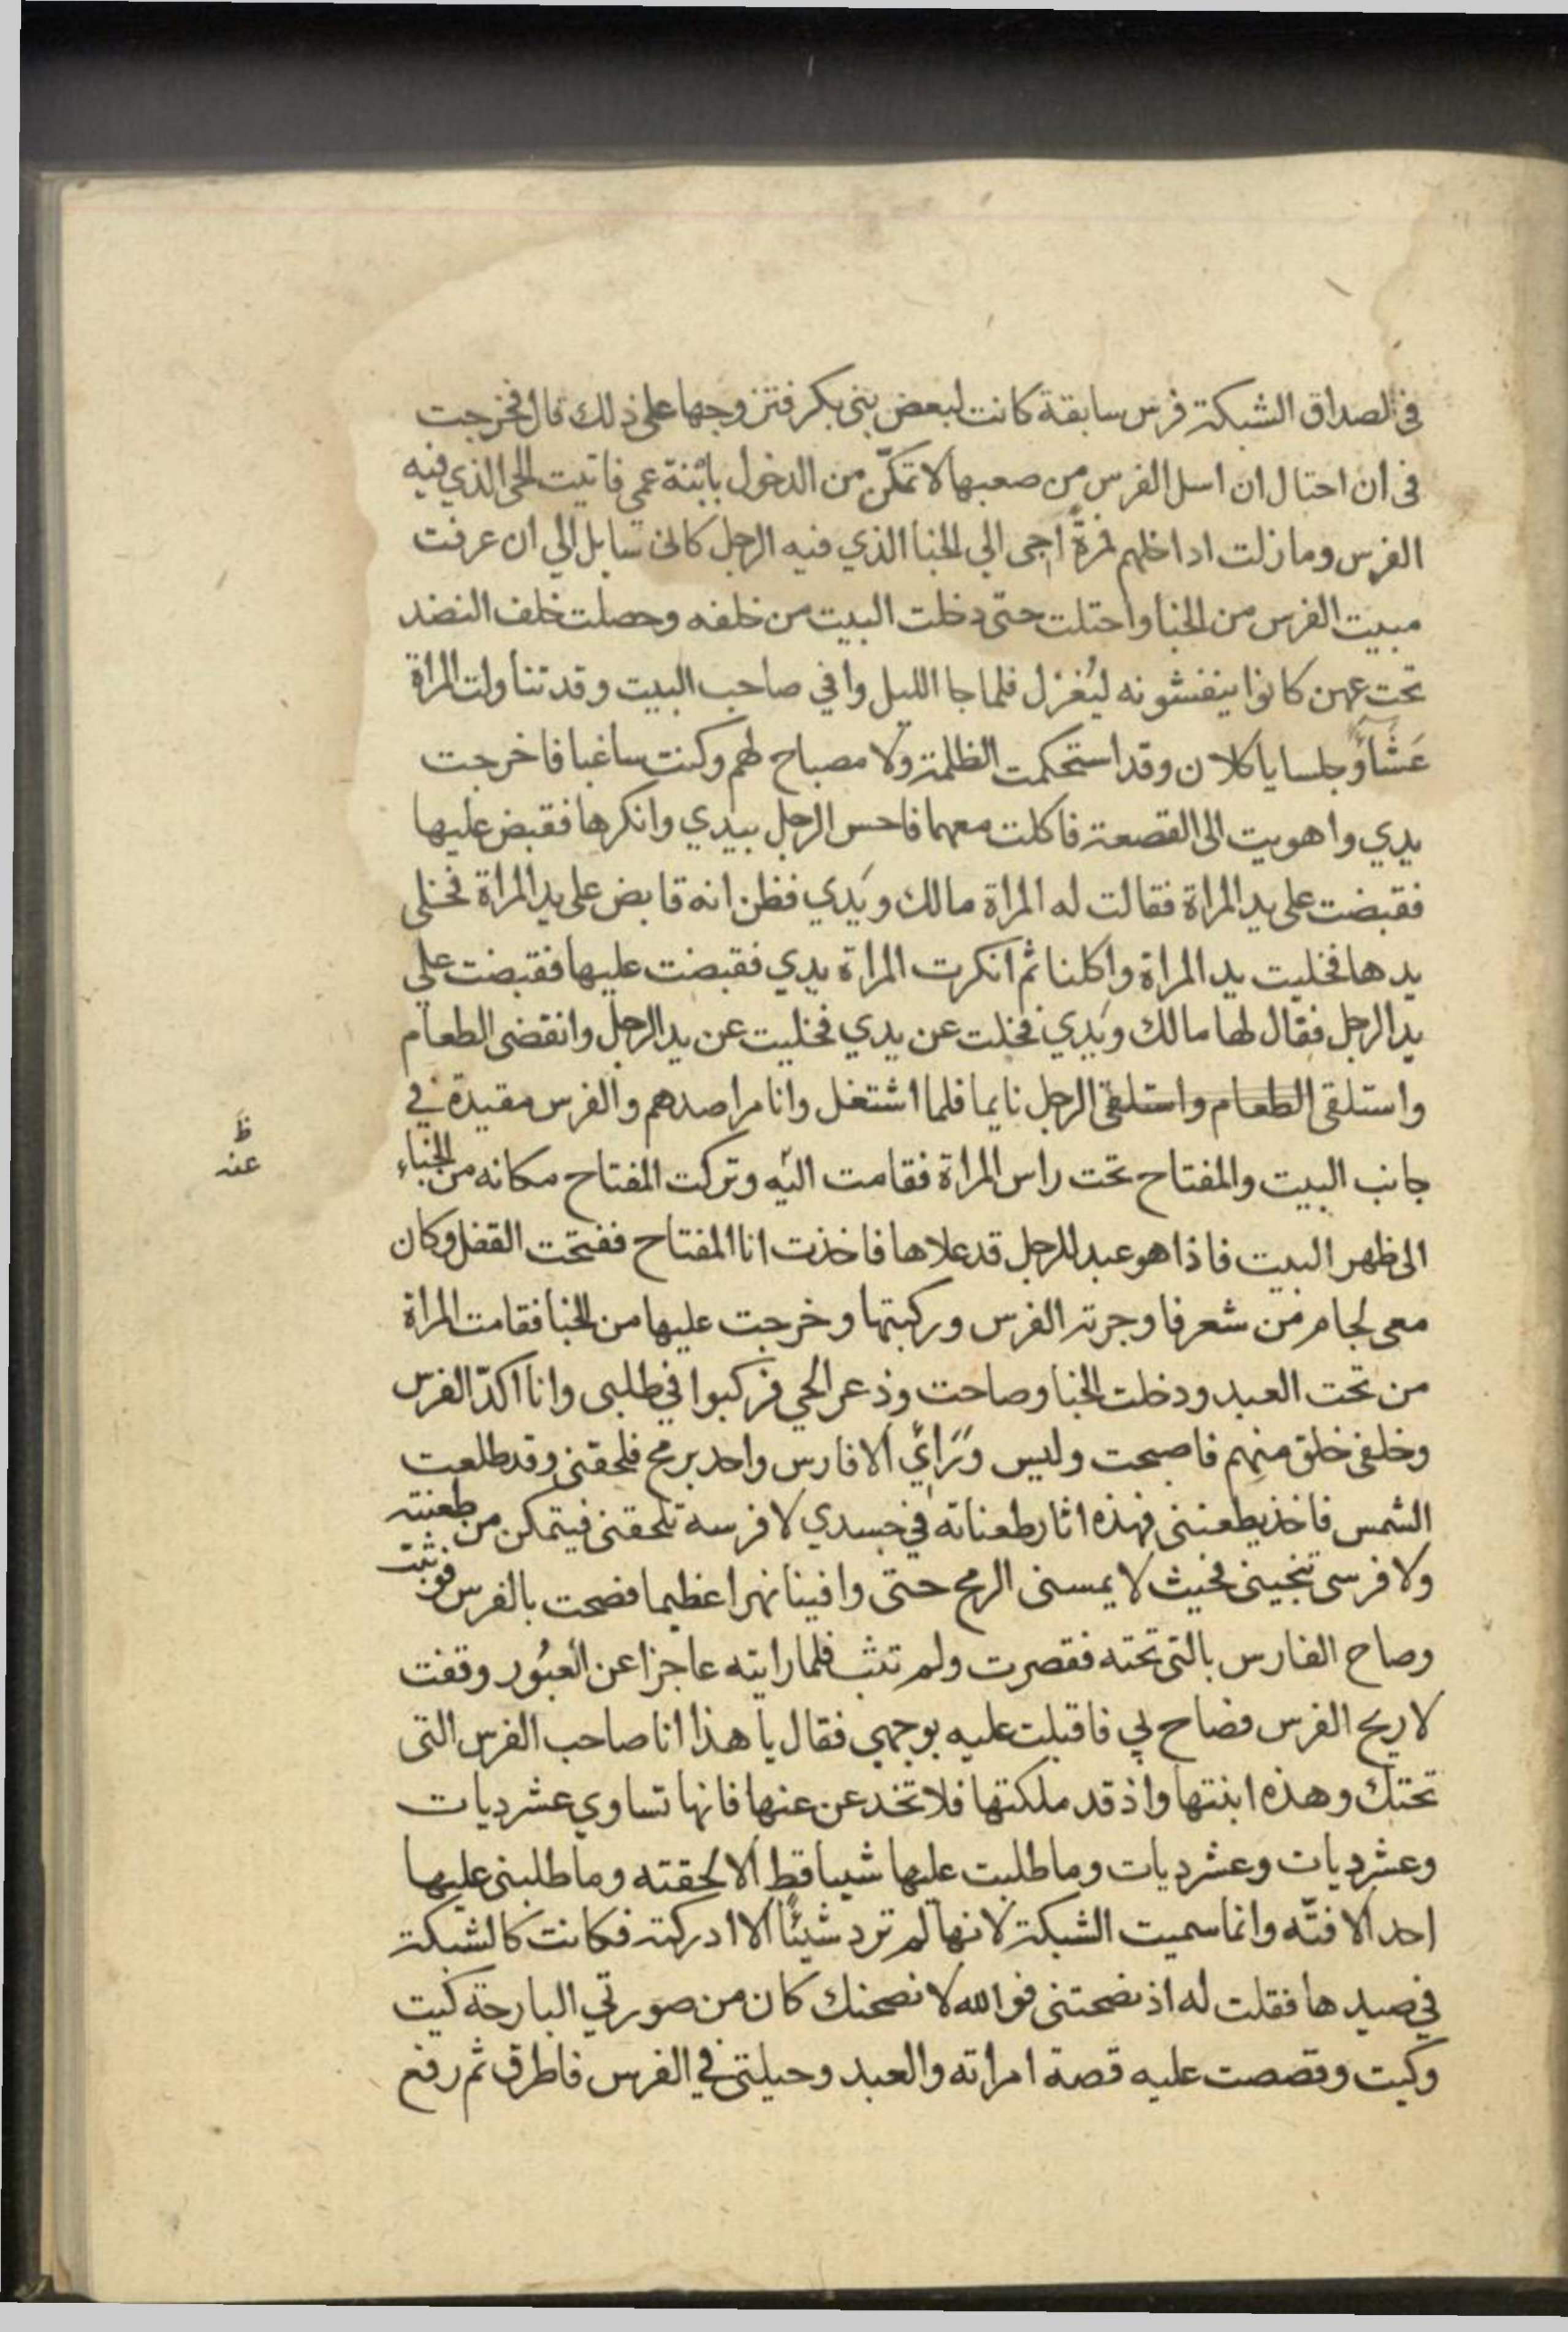 في الصداق الشبكة فرس سابقة كانت لبعض بني بكر فتزوجها على ذلك قال فخرجت
في ان احتال ان اسل الفرس من صعبها لا تمكّن من الدخول بابنة عمي فاتيت الحي الذي فيه
الفرس وما زلت اداخلهم فمرةً اجي الي الخبا الذي فيه الرجل كاني سايل الي ان عرفت
مبيت الفرس من الخبا واحتلت حتى دخلت البيت من خلفه وحصلت خلف النضد
تحت عهن كانوا ينفشونه ليُغزل فلما جا الليل وافي صاحب البيت وقد تناولت المراة
عَشَاءً وجلسا ياكلان وقد استحكمت الظلمة ولا مصباح لهم وكنت ساغبا فاخرجت
يدي واهويت الى القصعة فاكلت معهما فاحس الرجل بيدي وانكرها فقبض عليها
فقبضت على يد المراة فقالت له المراة مالك ويَدي فظن انه قابض على يد المراة فخلى
يدها فخليت يد المراة واكلنا ثم انكرت المراة يدي فقبضت عليها فقبضت علي
يد الرجل فقال لها مالك ويَدي فخلت عن يدي فخليت عن يد الرجل وانقضى الطعام
واستلقى الطعام واستلقى الرجل نايما فلما اشتغل وانا مراصدهم والفرس مقيدة في
جانب البيت والمفتاح تحت راس المراة فقامت اليه وتركت المفتاح مكانه من الخباء
الى ظهر البيت فاذا هو عبد للرجل قد علاها فاخذت انا المفتاح ففتحت القفل وكان
معي لجام من شعر فاوجرته الفرس وركبتها وخرجت عليها من الخبا فقامت المراة
من تحت العبد ودخلت الخبا وصاحت وذعر الحي فركبوا في طلبي وانا اكدّ الفرس
وخلفي خلق منهم فاصبحت وليس وَرَايَ الا فارس واحد برمح فلحقني وقد طلعت
الشمس فاخذ يطعنني فهذه اثار طعناته في جسدي لا فرسه تلحقني فيتمكن من طعنته
ولا فرسي تنجيني فحيث لا يمسني الرمح حتى وافينا نهرا عظيما فصحت بالفرس فوثبت
وصاح الفارس بالتي تحته فقصرت ولم تثب فلما رايته عاجزا عن العبُور وقفت
لاريح الفرس فصاح لي فاقبلت عليه بوجهي فقال يا هذا انا صاحب الفرس التي
تحتك وهذه ابنتها واذ قد ملكتها فلا تخدعن عنها فانها تساوي عشر ديات
وعشر ديات وعشر ديات وما طلبت عليها شييا قط الا لحقته وما طلبني عليها
احد الا فتّه وانما سميت الشبكة لانها لم ترد شيئًا الا ادركته فكانت كالشبكة
في صيدها فقلت له اذ نصحتني فوالله لانصحنك كان من صورتي البارحة كيت
وكيت وقصصت عليه قصة امراته والعبد وحيلتي في الفرس فاطرق ثم رفع
ظ
عنه